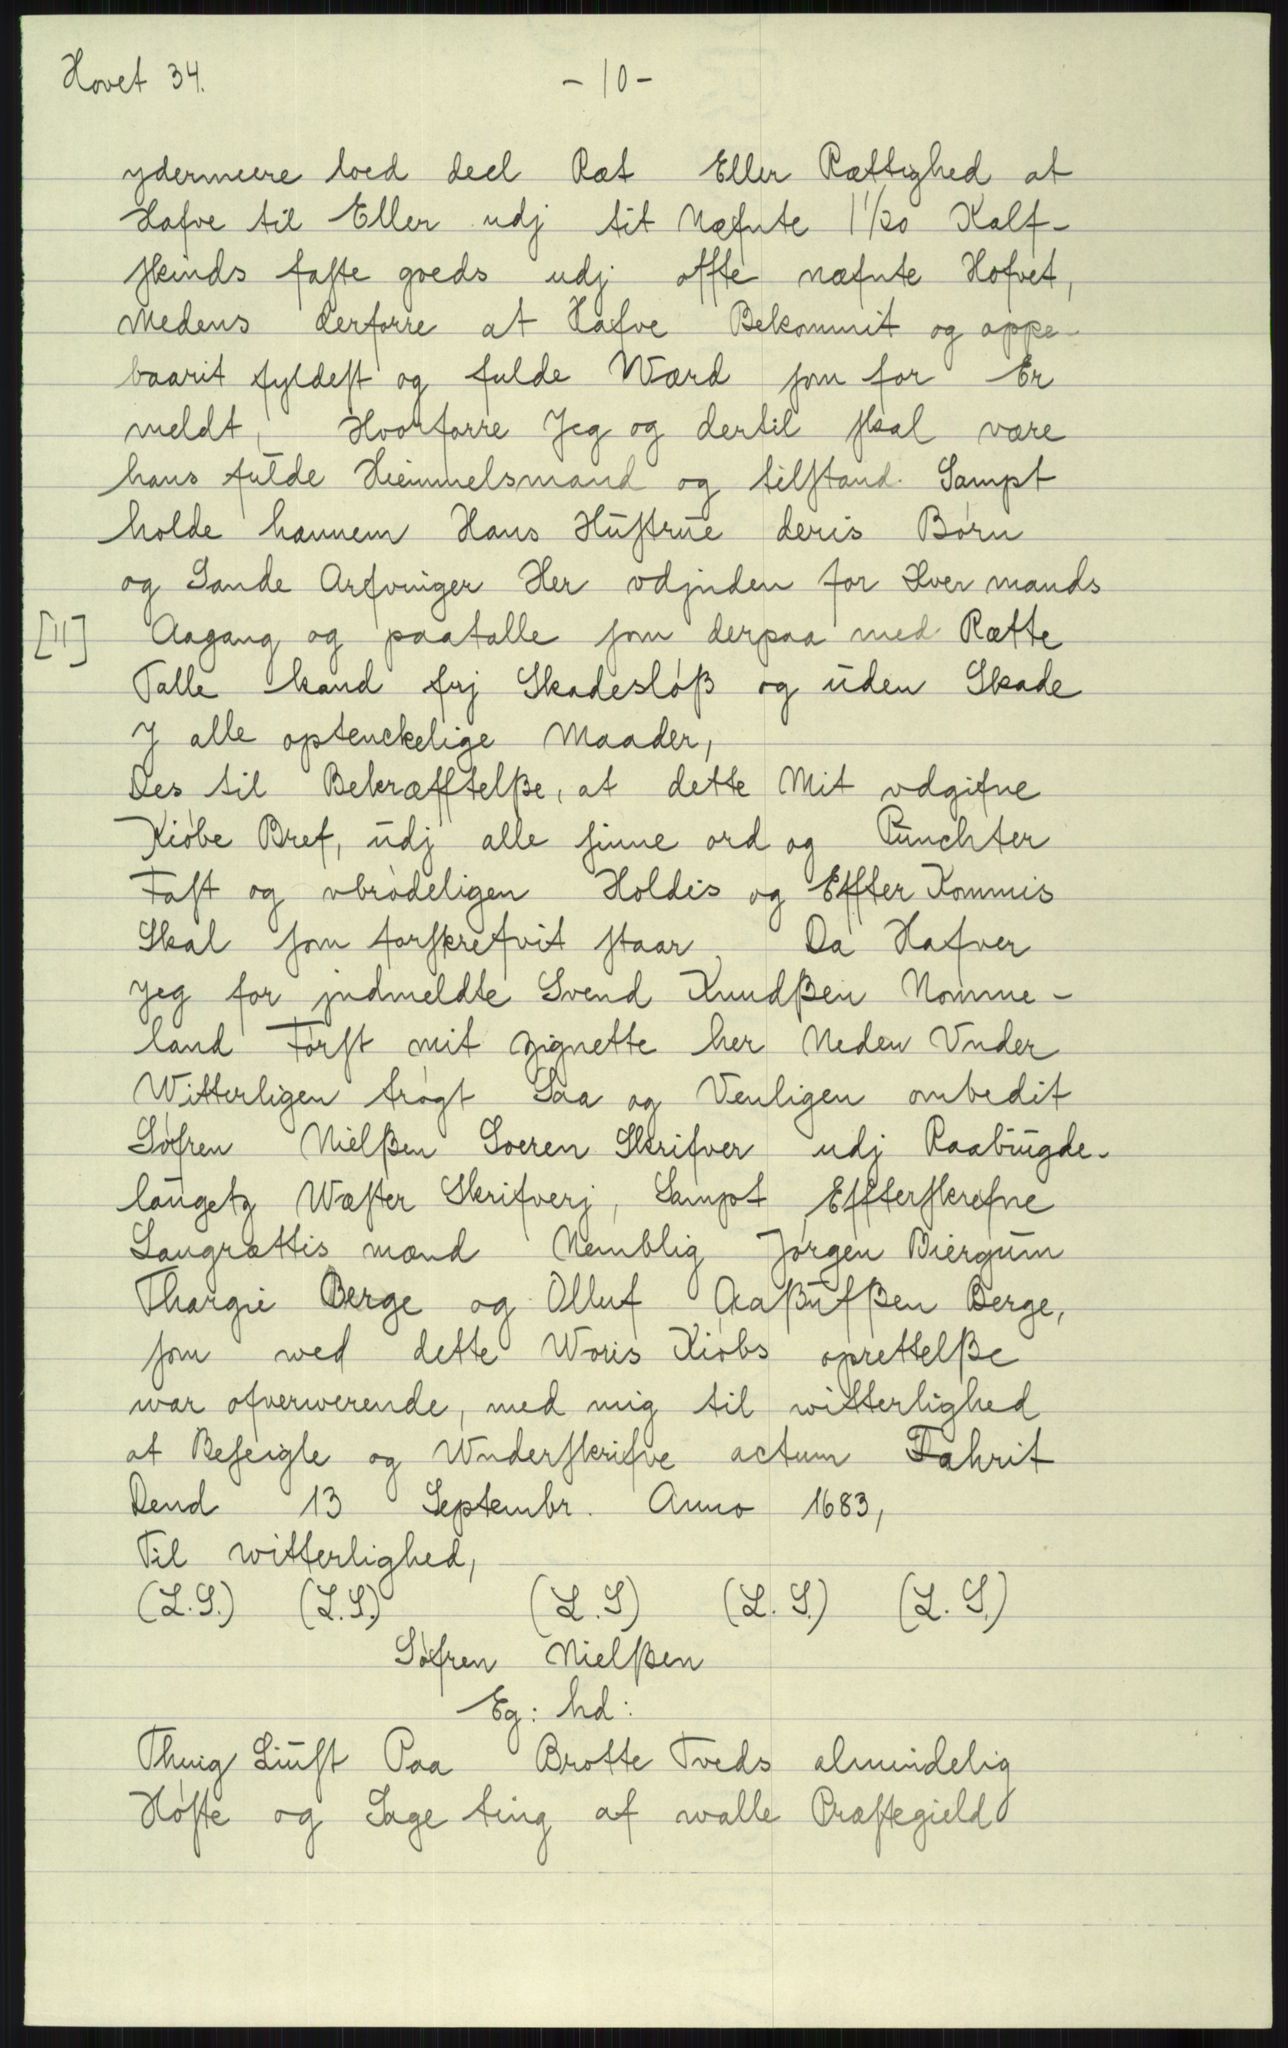 Hovet 34.
- 10 -
ydermeere loed deel Ræt Eller Rættighed at
Hafve til Eller udj tit Næfnte 1 1/20 Kalf-
skinds faste goeds udj offte næfnte Hofvet,
Medens derforre at Hafve Bekommit og oppe-
baarit fyldest og fulde Wærd som for Er
meldt, Hvorforre Jeg og dertil skal være
hans fulde Hiemmelsmand og tilstand. Sampt
holde hannem Hans Hustrue deris Børn
og Sande Arfvinger Her vdjnden for Hver mands
[11] Aagang og paatalle som derpaa med Rætte
Talle kand frj Skadesløß og uden Skade
J alle optenckelige Maader,
Des til Bekræfftelße, at dette Mit vdgifne
Kiøbe Bref, udj alle sinne ord og Punchter
Fast og vbrødeligen Holdis og Effter Kommis
Skal som forskrefvit staar, Da Hafver
Jeg for jndmeldte Svend Knudßen Nomme-
land Først mit zignette her Neden Vnder
Witterligen trøgt Saa og Venligen ombedit
Søfren Nielßen Soeren Skrifver udj Raabugde-
laugetz Wæster Skrifverj, Sampt Effterskrefne
Laugrættis mænd Nemblig Jørgen Biergum
Thargie Berge og Olluf Aaßufßen Berge,
som wed dette Woris Kiøbs oprettelße
war ofverwerende, med mig til witterlighed
at Beseigle og Wnderskrifve actum Fahrit
Dend 13 Septembr. Anno 1683,
Til witterlighed,
(L.S.) (L.S.) (L.S) (L.S.) (L.S.)
Søfren Nielßen
Eg: hd:
Thuig Liust Paa Brotte Tveds almindelig
Høste og Sage ting af walle Præstegield